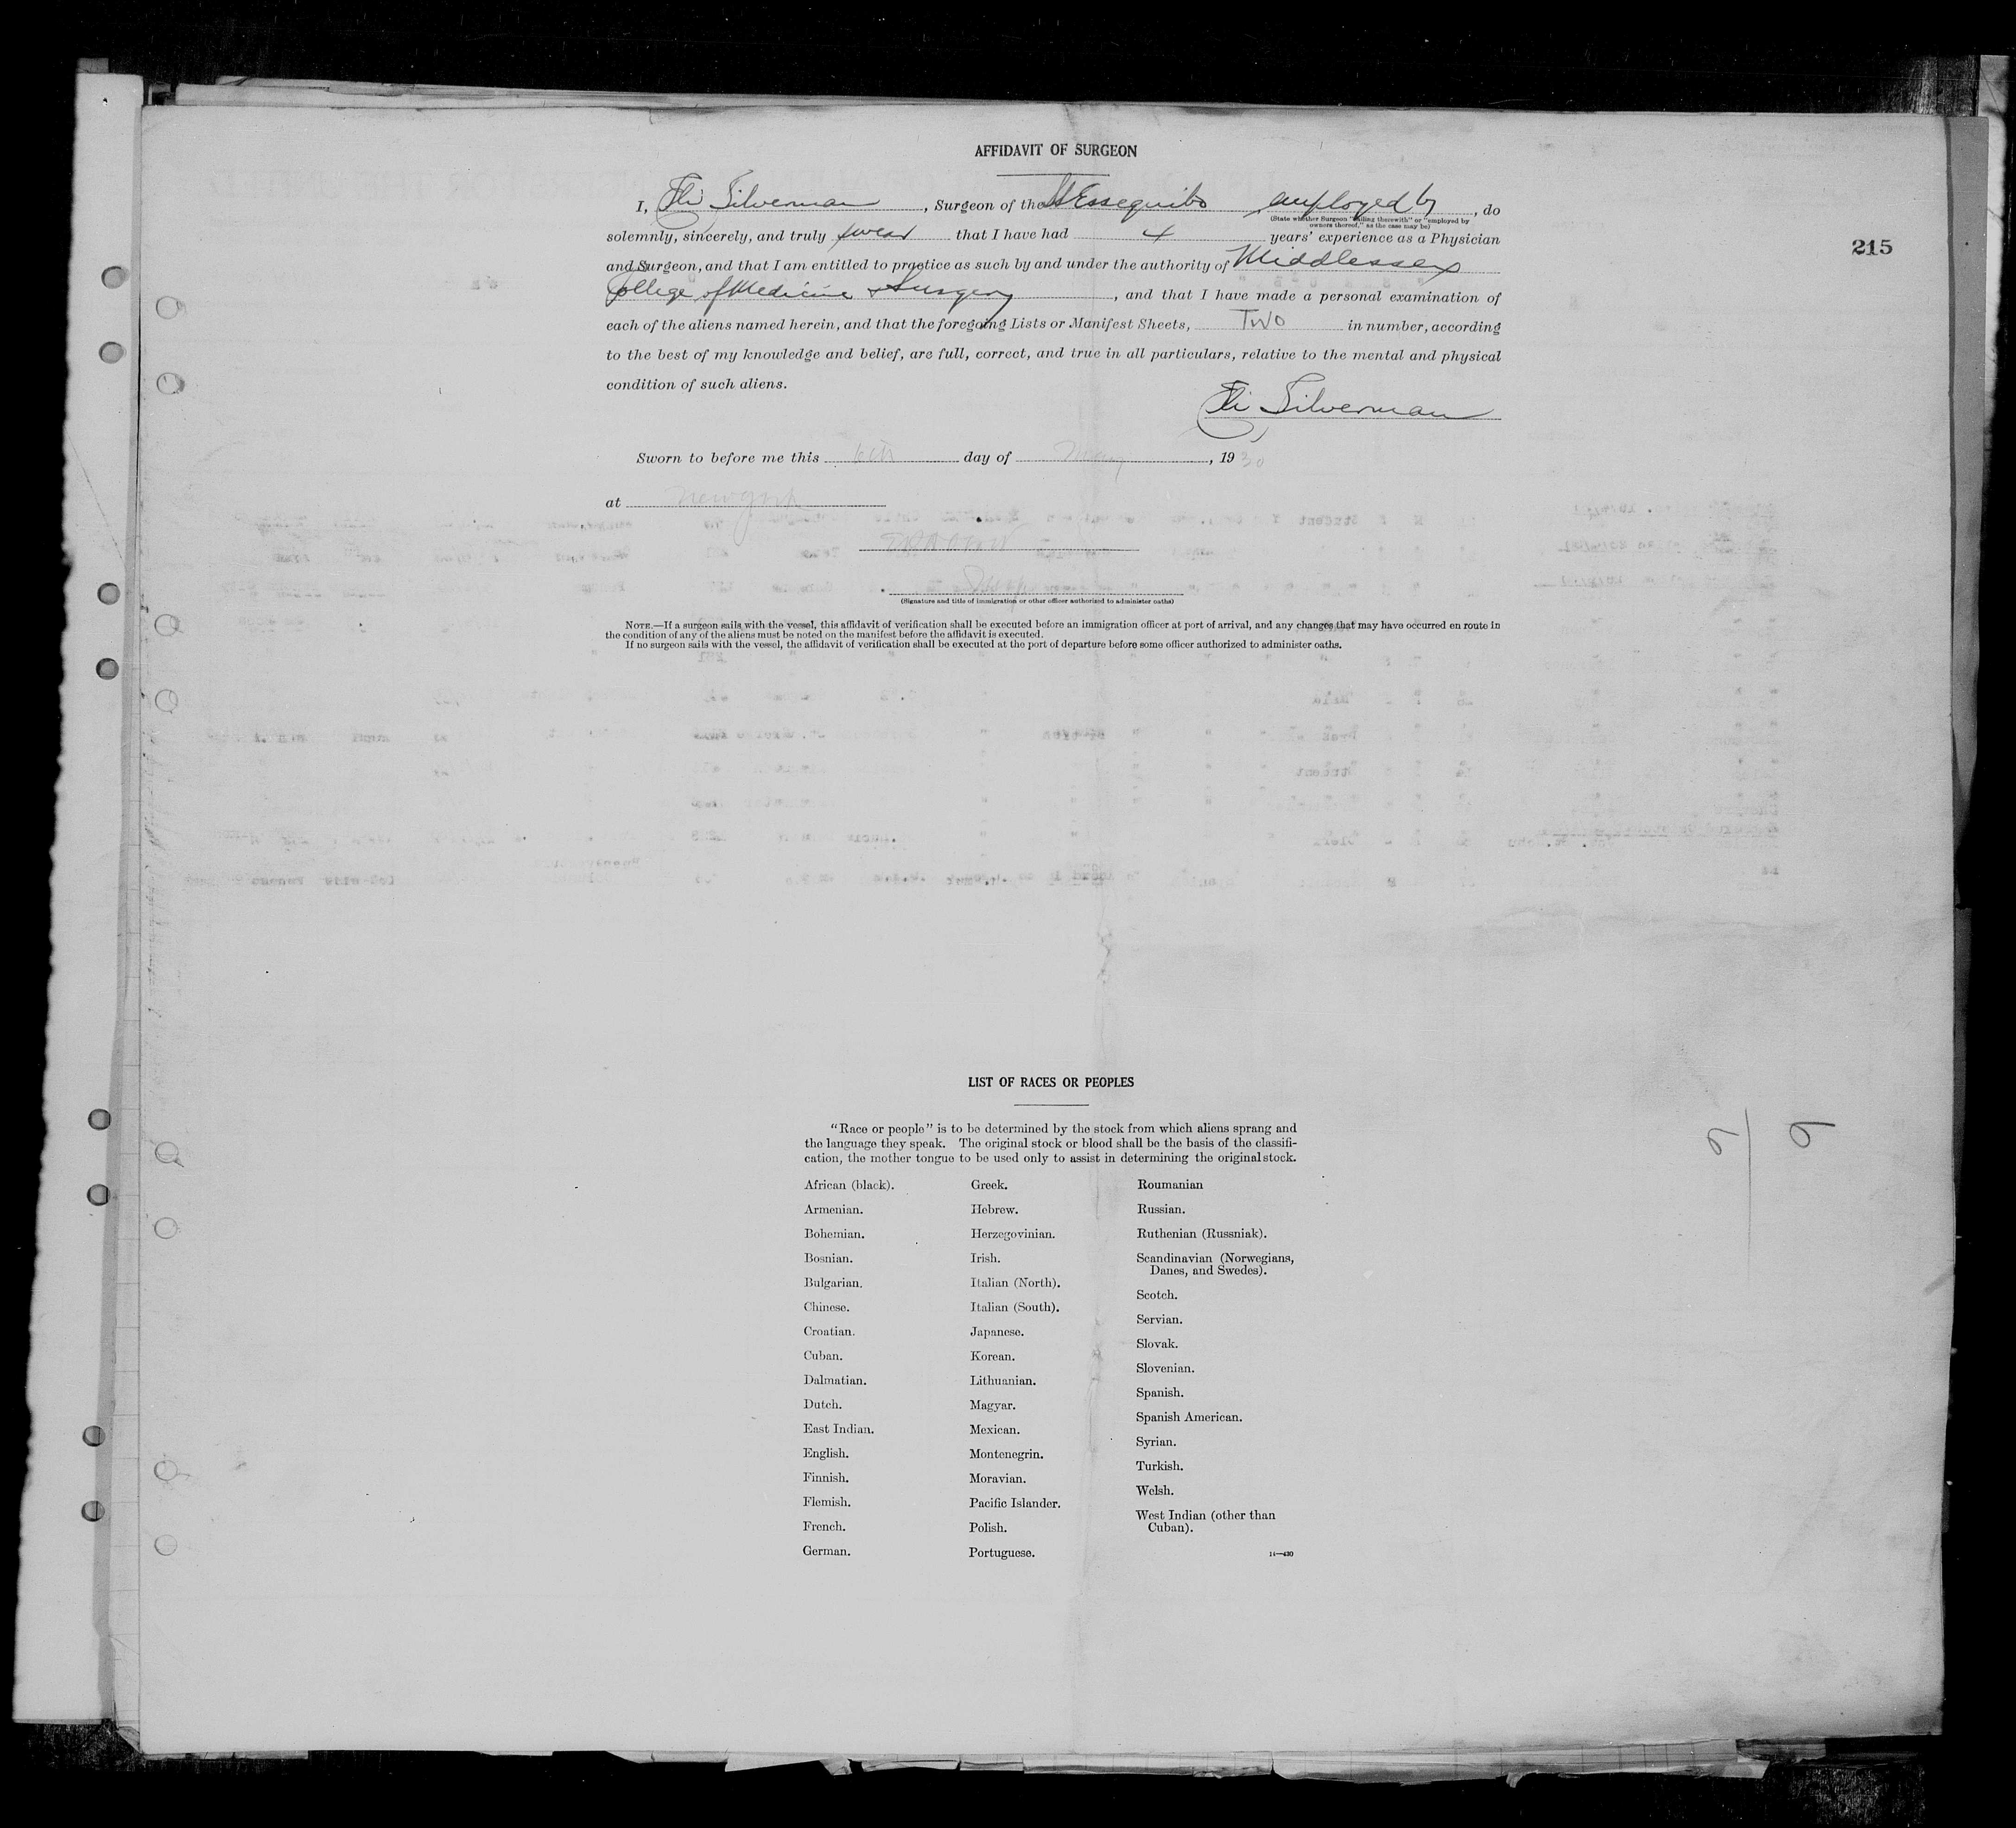 AFFIDAVIT OF SURGEON
I, Eli Silverman, Surgeon of the SS Essequibo employed by, do
(State whether Surgeon "sailing therewith" or "employed by
owners thereof," as the case may be)
solemnly, sincerely, and truly swear that I have had 4 years' experience as a Physician
and Surgeon, and that I am entitled to practice as such by and under the authority of Middlessex
College of Medicine & Surgery, and that I have made a personal examination of
each of the aliens named herein, and that the foregoing Lists or Manifest Sheets, Two in number, according
to the best of my knowledge and belief, are full, correct, and true in all particulars, relative to the mental and physical
condition of such aliens.
Eli Silverman
215
Sworn to before me this 6th day of May, 1930
at New York
(Signature and title of immigration or other officer authorized to administer oaths)
NOTE.—If a surgeon sails with the vessel, this affidavit of verification shall be executed before an immigration officer at port of arrival, and any changes that may have occurred en route in
the condition of any of the aliens must be noted on the manifest before the affidavit is executed.
If no surgeon sails with the vessel, the affidavit of verification shall be executed at the port of departure before some officer authorized to administer oaths.
LIST OF RACES OR PEOPLES
"Race or people" is to be determined by the stock from which aliens sprang and
the language they speak. The original stock or blood shall be the basis of the classifi-
cation, the mother tongue to be used only to assist in determining the original stock.
African (black).
Armenian.
Bohemian.
Bosnian.
Bulgarian.
Chinese.
Croatian.
Cuban.
Dalmatian.
Dutch.
East Indian.
English.
Finnish.
Flemish.
French.
German.
Greek.
Hebrew.
Herzegovinian.
Irish.
Italian (North).
Italian (South).
Japanese.
Korean.
Lithuanian.
Magyar.
Mexican.
Montenegrin.
Moravian.
Pacific Islander.
Polish.
Portuguese.
Roumanian
Russian.
Ruthenian (Russniak).
Scandinavian (Norwegians,
Danes, and Swedes).
Scotch.
Servian.
Slovak.
Slovenian.
Spanish.
Spanish American.
Syrian.
Turkish.
Welsh.
West Indian (other than
Cuban).
14—430